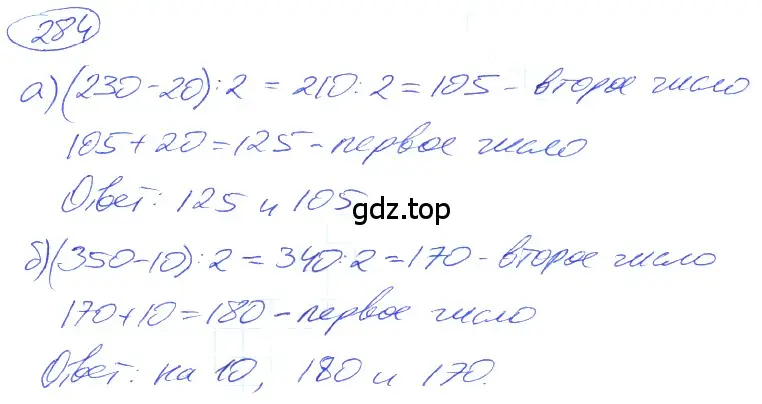 284
а) (230-20):2 = 210:2 = 105 - второе число
105+20=125 - первое число
Ответ: 125 и 105
gdz.top
б) (350-10):2 = 340:2 = 170 - второе число
170+10=180 - первое число
Ответ: на 10, 180 и 170.